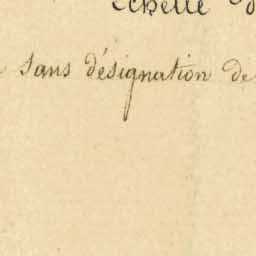 Echelle d
sans désignation de